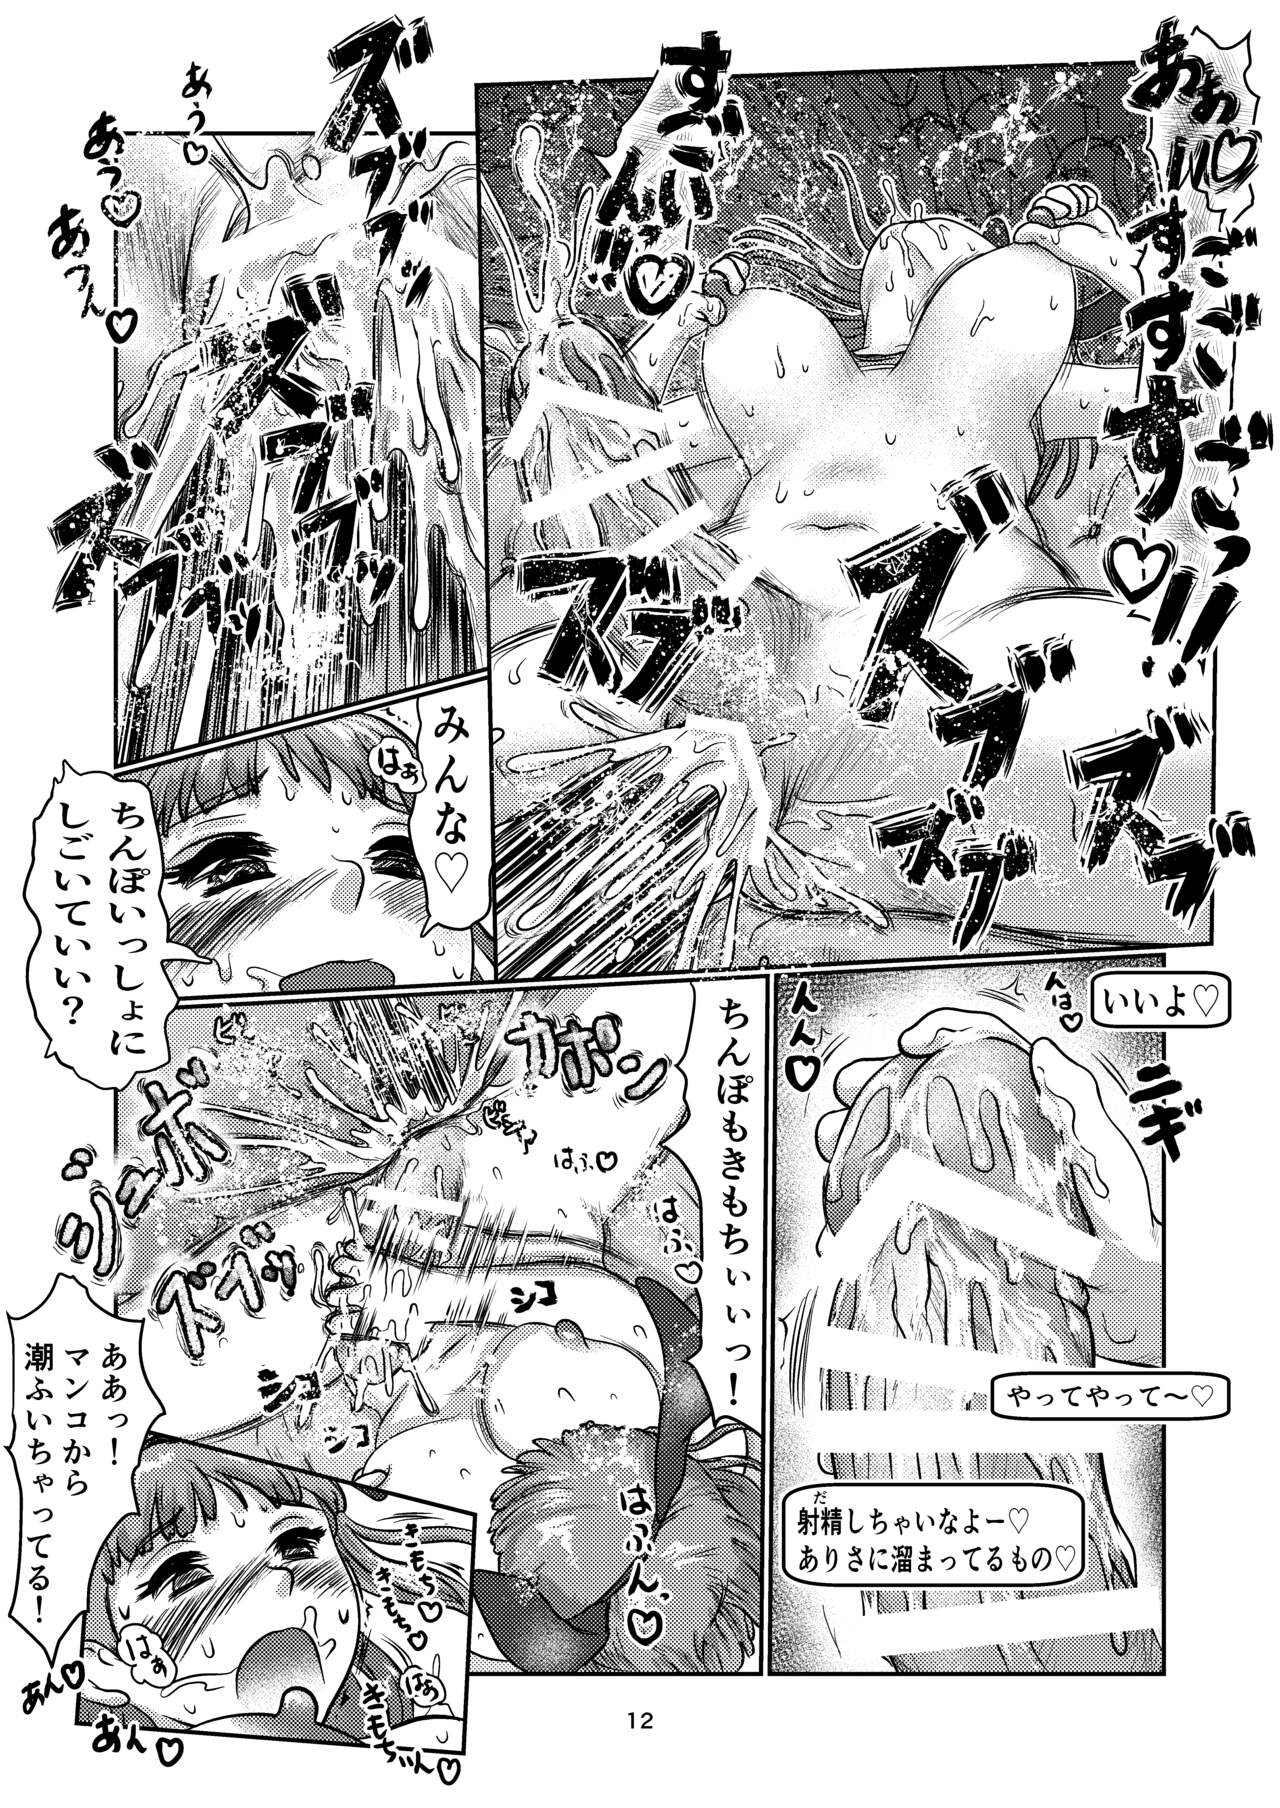 ああ♡
すごすごすごすごぃっ♡!!
すごいいんっ♡
ズブズブズブズズ
ズズブズズブズブッ
あぅ♡
あぅ♡
あっん♡
みんな♡
はぁ
ちんぽいっしょに
しごいていい？
いいよ♡
んは♡
んん♡
ニギ
やってやって～♡
射精しちゃいなよー♡
だ
ありさに溜まってるもの♡
ちんぽもきもちぃぃっ！
カポン
ジュボ
ズブッ
はふ♡
はふ♡
シコ
シコ
シコ
はふん♡
ああっ！
マンコから
潮ふいちゃってる！
きもち♡
きもち♡
きもちぃん♡
はぁ
はぁ
あん♡
あん♡
12